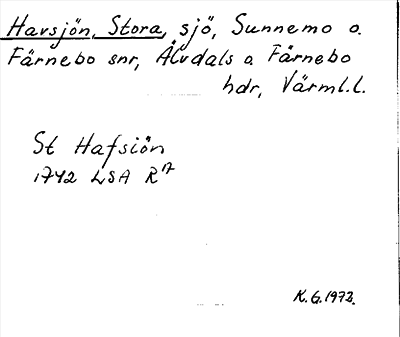 Havsjön, Stora, sjö, Sunnemo o.
Färnebo snr, Älvdals o Färnebo
hdr, Värml.l.
St Hafsiön
1742 LSA R17
K.G.1973.